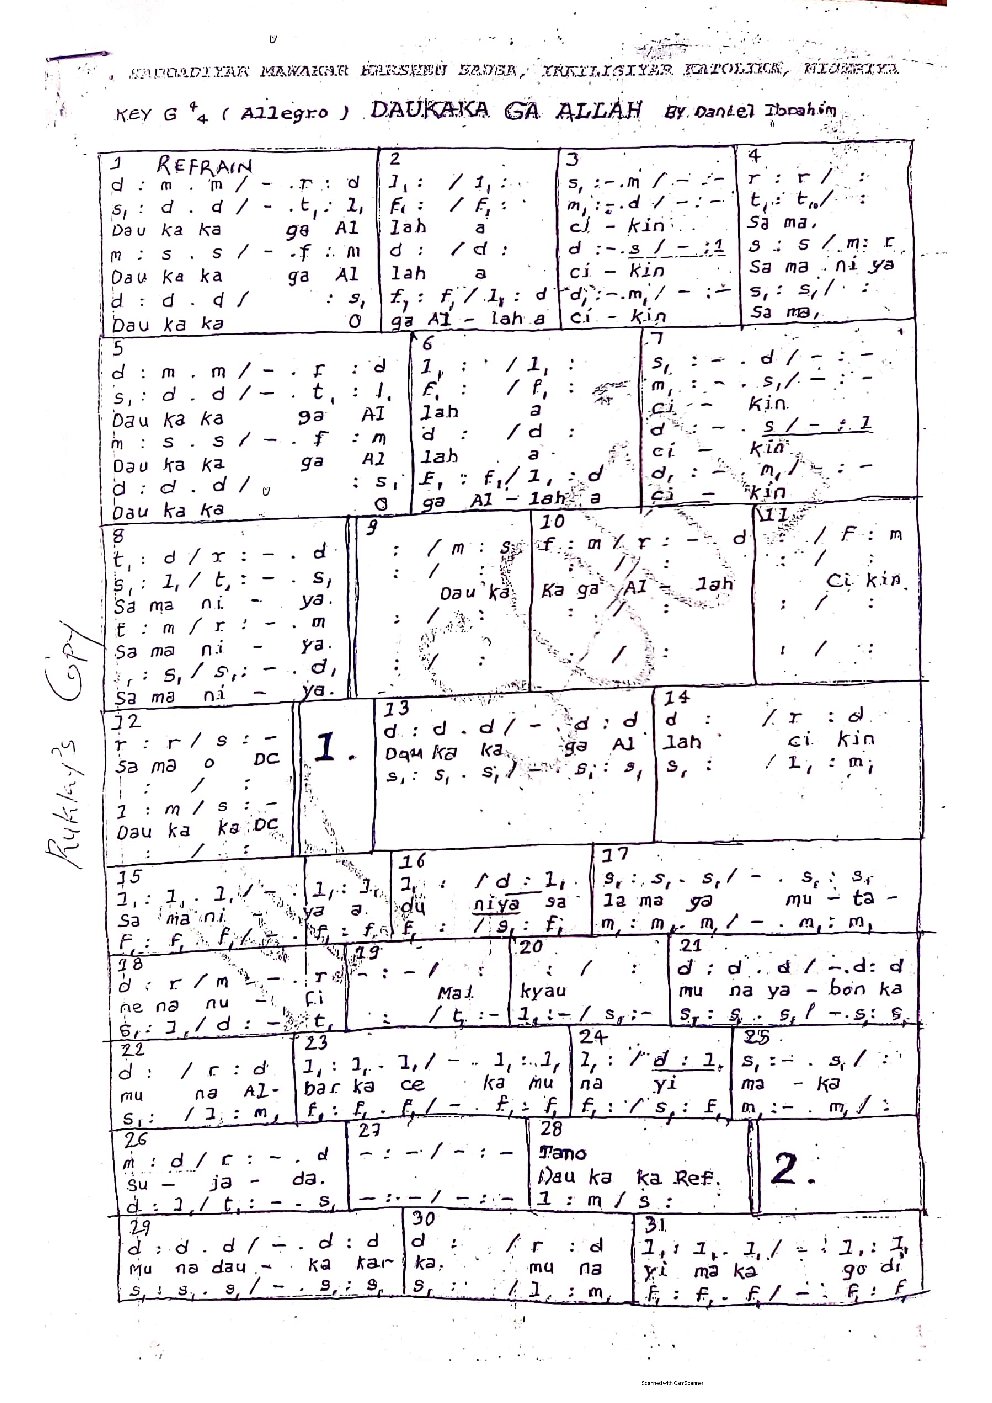 KEY G 4/4 ( Allegro ) DAUKAKA GA ALLAH By. Daniel Ibrahim
1 REFRAIN
d : m . m / – . r : d
s₁ : d . d / – . t₁ : l₁
Dau ka ka ga Al
m : s . s / – . f : m
Dau ka ka ga Al
d : d . d / : s₁
Dau ka ka O
2
l₁ : / l₁ :
f₁ : / f₁ :
lah a
d : / d :
lah a
f₁ : f₁ / l₁ : d
ga Al – lah a
3
s₁ : – . m / – : –
m₁ : – . d / – : –
ci – kin
d : – . s / – : l
ci – kin
d₁ : – . m₁ / – : –
ci – kin
4
r : r / :
t₁ : t₁ / :
Sa ma,
s : s / m : r
Sa ma ni ya
s₁ : s₁ / :
Sa ma,
5
d : m . m / – . r : d
s₁ : d . d / – . t₁ : l₁
Dau ka ka ga Al
m : s . s / – . f : m
Dau ka ka ga Al
d : d . d / : s₁
Dau ka ka O
6
l₁ : / l₁ :
f₁ : / f₁ :
lah a
d : / d :
lah a
f₁ : f₁ / l₁ : d
ga Al – lah a
7
s₁ : – . d / – : –
m₁ : – . s₁ / – : –
ci – kin
d : – . s / – : l
ci – kin
d₁ : – . m₁ / – : –
ci – kin
8
t₁ : d / r : – . d
s₁ : l₁ / t₁ : – . s₁
Sa ma ni – ya.
f : m / r : – . m
Sa ma ni – ya.
: s₁ / s₁ : – . d₁
Sa ma ni – ya.
9
: / m : s
: / :
Dau ka
: / :
: / :
10
f : m / r : – d
: / :
Ka ga Al – lah
: / :
: / :
11
: / f : m
: / :
Ci kin
: / :
: / :
12
r : r / s : –
Sa ma o DC
: / :
l : m / s : –
Dau ka ka DC
: / :
1.
13
d : d . d / – . d : d
Dau ka ka ga Al
s₁ : s₁ . s₁ / – . s₁ : s₁
14
d : / r : d
lah ci kin
s₁ : / l₁ : m₁
15
l₁ : l₁ . l₁ / – : l₁ : l₁
Sa ma ni ya a
f₁ : f₁ f₁ / – . f₁ : f₁
16
l₁ : / d : l₁
du niya sa
f₁ : / s₁ : f₁
17
s₁ : s₁ . s₁ / – . s₁ : s₁
la ma ga mu – ta –
m₁ : m₁ . m₁ / – . m₁ : m₁
18
d : r / m – . r
ne na nu – fi
s₁ : l₁ / d : – t₁
19
– : – / :
Mai
: / t₁ : –
20
: / :
kyau
l₁ : – / s₁ : –
21
d : d . d / – . d : d
mu na ya – bon ka
s₁ : s₁ . s₁ / – . s₁ : s₁
22
d : / r : d
mu na Al-
s₁ : / l₁ : m₁
23
l₁ : l₁ . l₁ / – . l₁ : l₁
bar ka ce ka mu
f₁ : f₁ . f₁ / – . f₁ : f₁
24
l₁ : / d : l₁
na yi
f₁ : / s₁ : f₁
25
s₁ : – . s₁ / :
ma – ka
m₁ : – . m₁ / :
26
m : d / r : – . d
su – ja – da.
d : l₁ / t₁ : – . s₁
27
– : – / – : –
– : – / – : –
28
Tano
Dau ka ka Ref.
l : m / s :
2.
29
d : d . d / – . d : d
Mu na dau – ka kar
s₁ : s₁ . s₁ / – . s₁ : s₁
30
d : / r : d
ka, mu na
s₁ : / l₁ : m₁
31
l₁ : l₁ . l₁ / – : l₁ : l₁
yi ma ka go di
f₁ : f₁ . f₁ / – : f₁ : f₁
Copy
Scanned with CamScanner